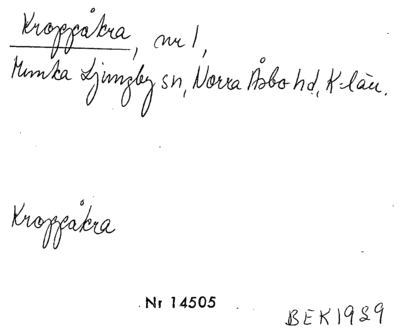 Kroppåkra, nr 1,
Munka Ljungby sn, Norra Åsbo hd, K-län.
Kroppåkra
Nr 14505
BEK1989